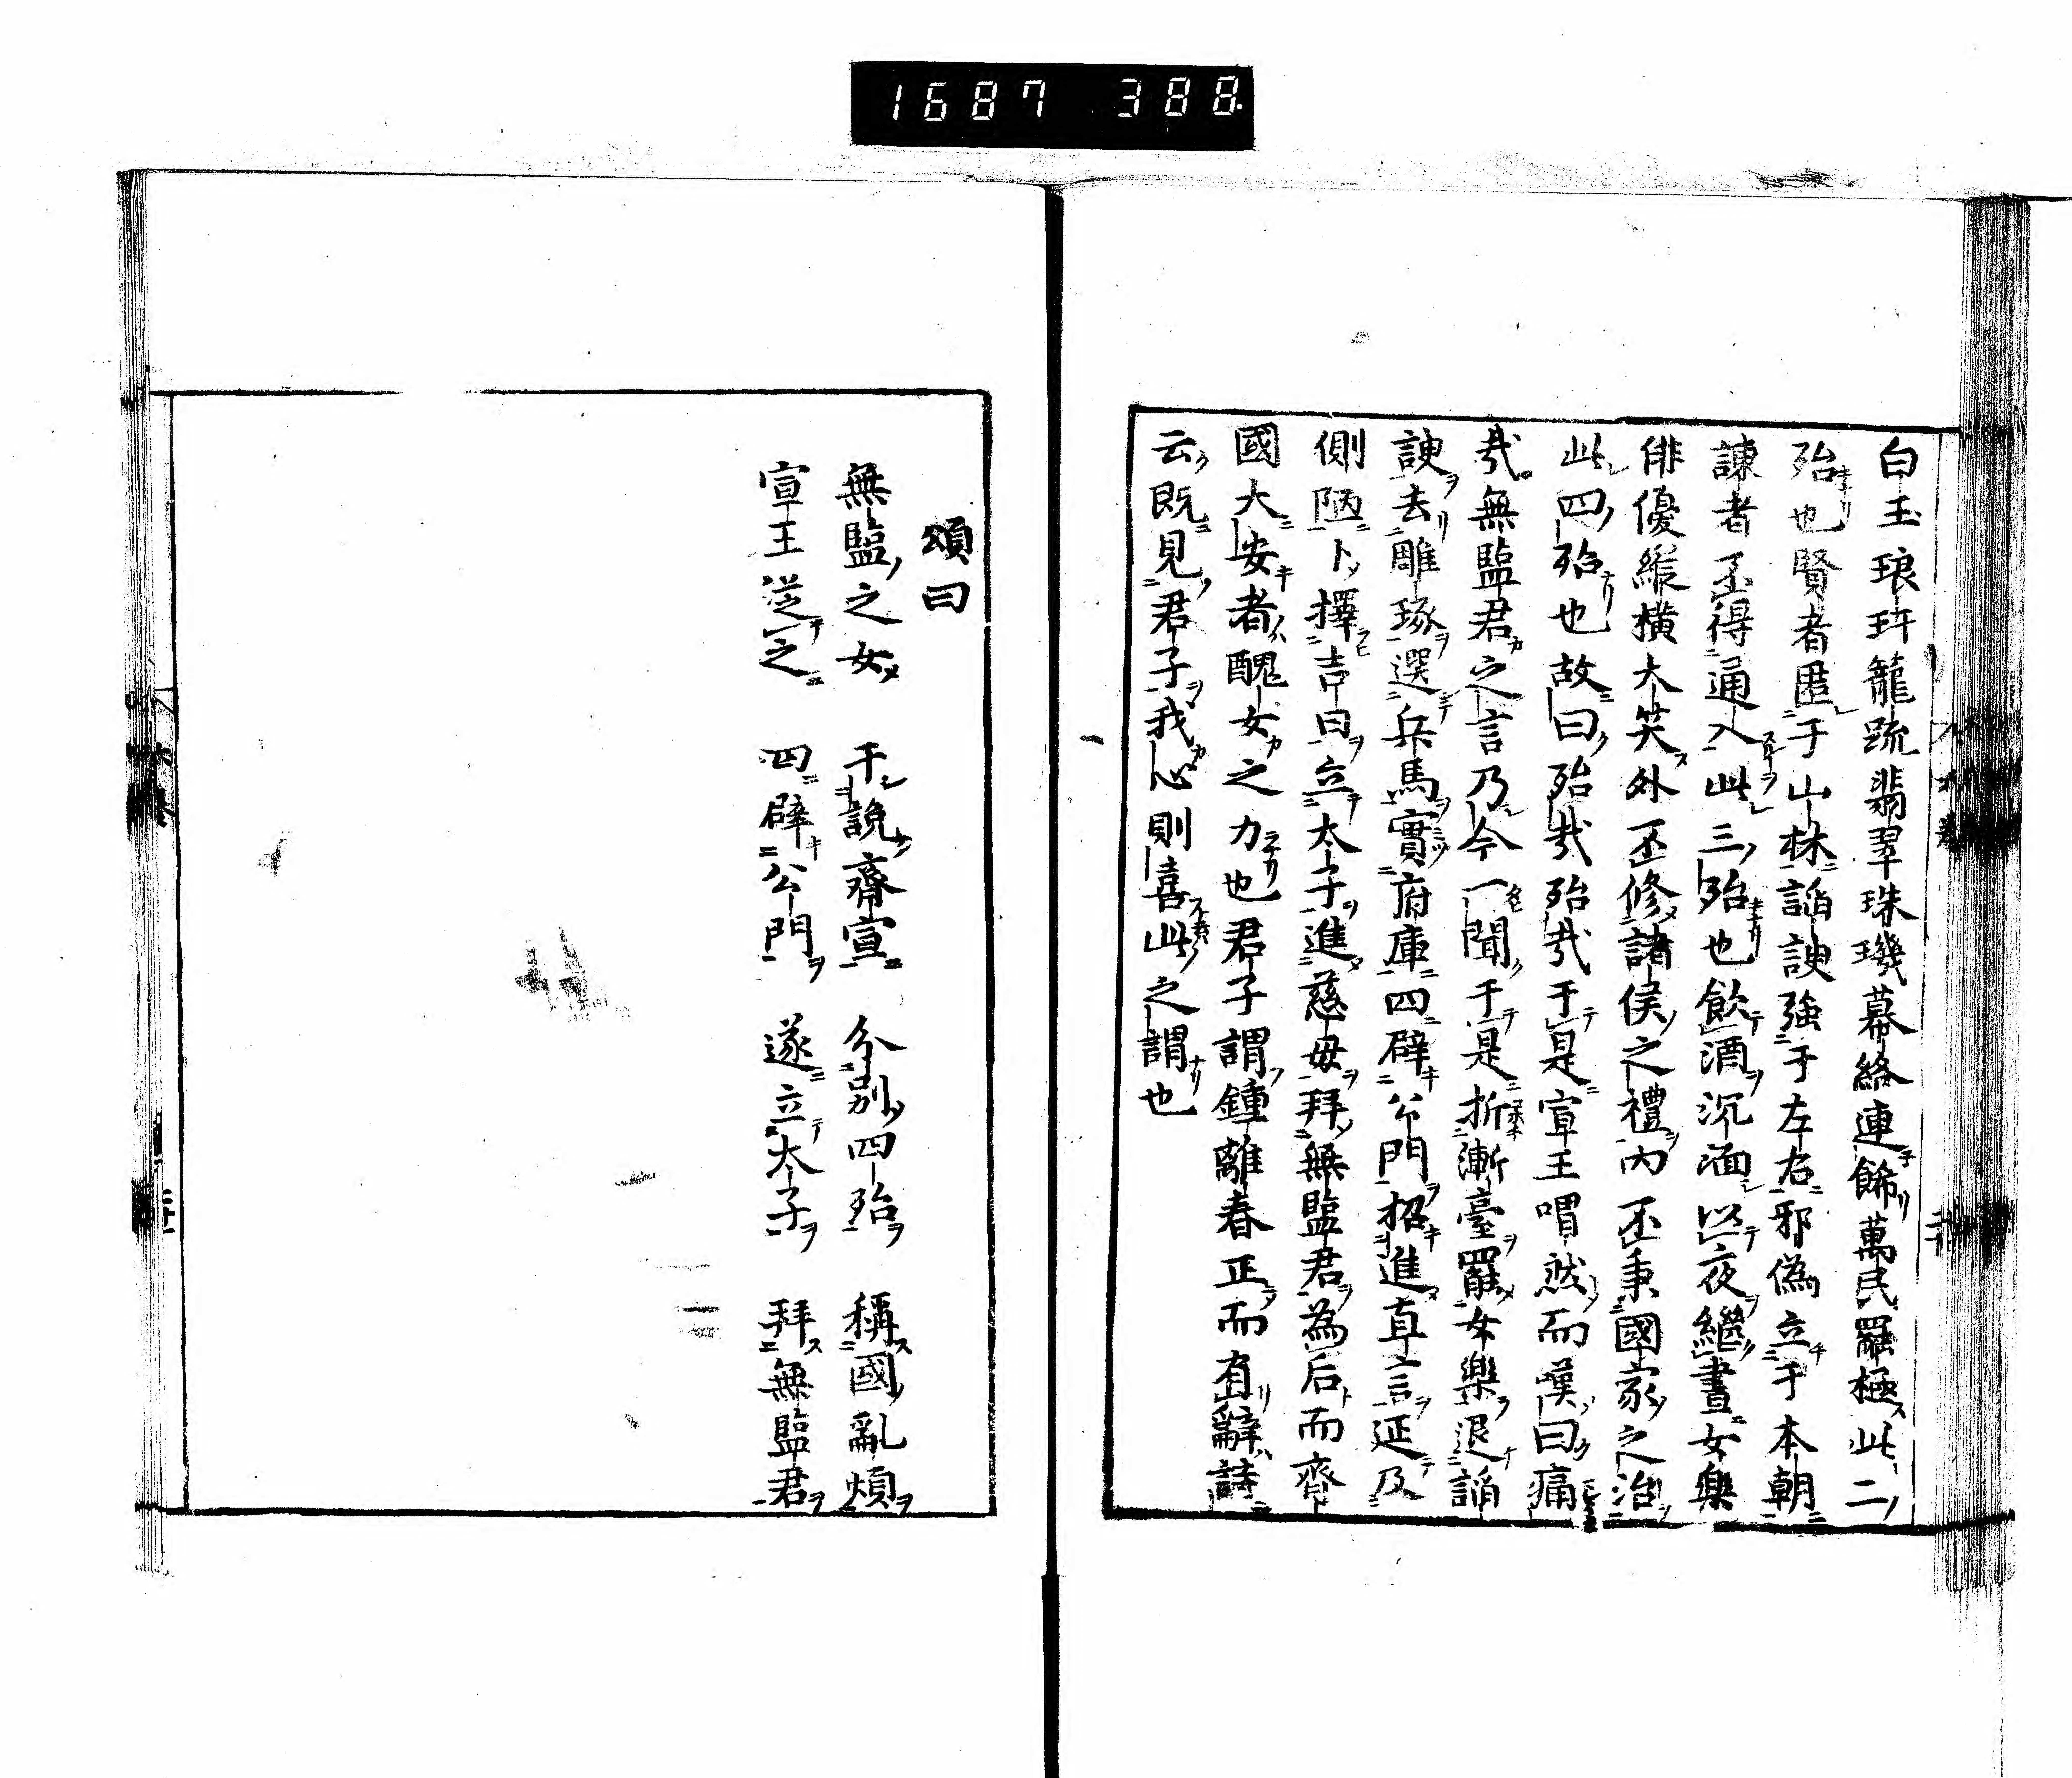 1687 388
白玉琅玕籠疏翡翠珠璣幕絡連飾萬民羅極此二
殆也賢者匿于山林諂諛強于左右邪偽立于本朝
諫者不得通入此三殆也飲酒沉湎以夜繼晝女樂
俳優縱橫大笑外不修諸侯之禮內不秉國家之治
此四殆也故曰殆哉殆哉于是宣王喟然而嘆曰痛
哉無鹽君之言乃今一聞于是折漸臺罷女樂退諂
諛去雕琢選兵馬實府庫四辟公門招進直言延及
側陋卜擇吉日立太子進慈母拜無鹽君為后而齊
國大安者醜女之力也君子謂鍾離春正而有辭詩
云既見君子我心則喜此之謂也
頌曰
無鹽之女　干說齊宣　分別四殆　稱國亂煩
宣王從之　四辟公門　遂立太子　拜無鹽君